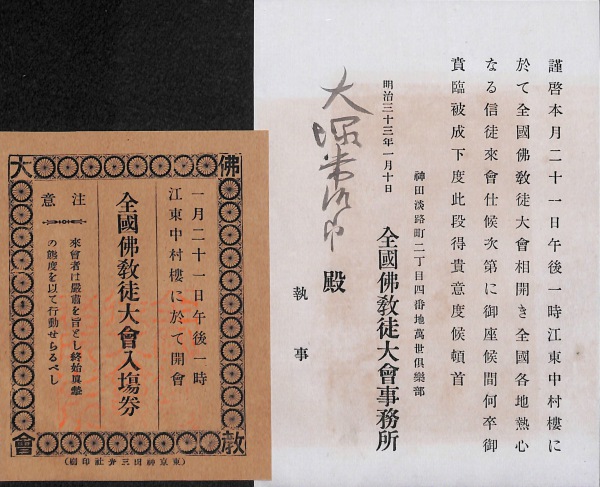 謹啓本月二十一日午後一時江東中村樓に
於て全國佛教徒大會相開き全國各地熱心
なる信徒來會仕候次第に御座候間何卒御
賁臨被成下度此段得貴意度候頓首
神田淡路町二丁目四番地萬世倶樂部
明治三十三年一月十日
全國佛教徒大會事務所
執事
大
殿
佛教大會
一月二十一日午後一時
江東中村樓に於て開會
全國佛教徒大會入塲券
注意
來會者は嚴肅を旨とし終始眞摯
の態度を以て行動せらるべし
(東京神田三秀社印刷)